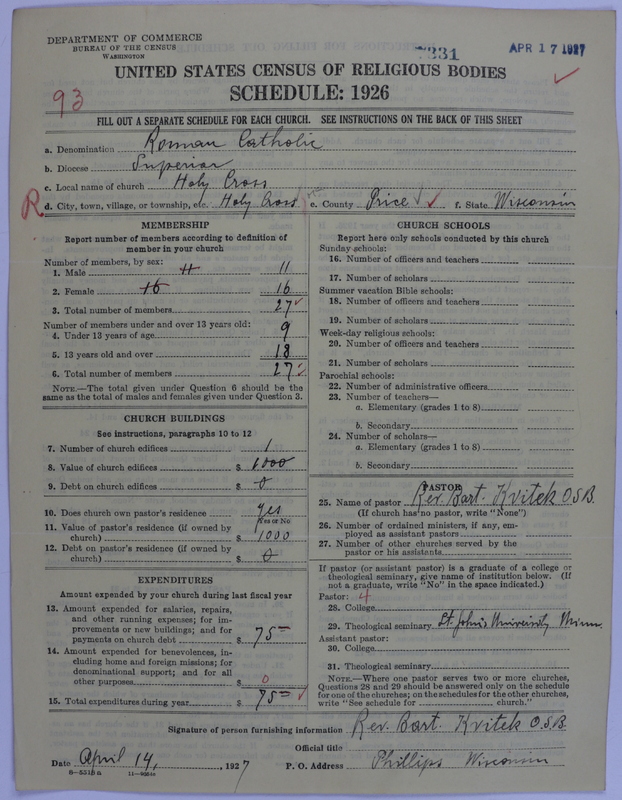 DEPARTMENT OF COMMERCE
BUREAU OF THE CENSUS
WASHINGTON
7331
APR 17 1927
UNITED STATES CENSUS OF RELIGIOUS BODIES
SCHEDULE: 1926
93
FILL OUT A SEPARATE SCHEDULE FOR EACH CHURCH. SEE INSTRUCTIONS ON THE BACK OF THIS SHEET
a. Denomination Roman Catholic
b. Diocese Superior
c. Local name of church Holy Cross
R d. City, town, village, or township, etc. Holy Cross e. County Price f. State Wisconsin
MEMBERSHIP
Report number of members according to definition of
member in your church
Number of members, by sex:
1. Male 11 11
2. Female 16 16
3. Total number of members 27
Number of members under and over 13 years old:
4. Under 13 years of age 9
5. 13 years old and over 18
6. Total number of members 27
NOTE.—The total given under Question 6 should be
same as the total of males and females given under Question 3.
CHURCH BUILDINGS
See instructions, paragraphs 10 to 12
7. Number of church edifices 1
8. Value of church edifices $ 1000
9. Debt on church edifices $ 0
10. Does church own pastor's residence yes
Yes or No
11. Value of pastor's residence (if owned by
church) $ 1000
12. Debt on pastor's residence (if owned by
church) $ 0
EXPENDITURES
Amount expended by your church during last fiscal year
13. Amount expended for salaries, repairs,
and other running expenses; for im-
provements or new buildings; and for
payments on church debt $ 75
14. Amount expended for benevolences, in-
cluding home and foreign missions; for
denominational support; and for all
other purposes $ 0
15. Total expenditures during year $ 75
CHURCH SCHOOLS
Report here only schools conducted by this church
Sunday schools:
16. Number of officers and teachers
17. Number of scholars
Summer vacation Bible schools:
18. Number of officers and teachers
19. Number of scholars
Week-day religious schools:
20. Number of officers and teachers
21. Number of scholars
Parochial schools:
22. Number of administrative officers
23. Number of teachers—
a. Elementary (grades 1 to 8)
b. Secondary
24. Number of scholars—
a. Elementary (grades 1 to 8)
b. Secondary
PASTOR
25. Name of pastor Rev. Bart. Kvitek O.S.B.
(If church has no pastor, write "None")
26. Number of ordained ministers, if any, em-
ployed as assistant pastors
27. Number of other churches served by the
pastor or his assistants
If pastor (or assistant pastor) is a graduate of a college or
theological seminary, give name of institution below. (If
not a graduate, write "No" in the space indicated.)
Pastor: 4
28. College
29. Theological seminary St. John's University Minn.
Assistant pastor:
30. College
31. Theological seminary
NOTE.—Where one pastor serves two or more churches,
Questions 28 and 29 should be answered only on the schedule
for one of the churches; on the schedules for the other churches,
write "See schedule for church."
Signature of person furnishing information Rev. Bart. Kvitek O.S.B.
Official title
Date April 14, 1927 P. O. Address Phillips Wisconsin